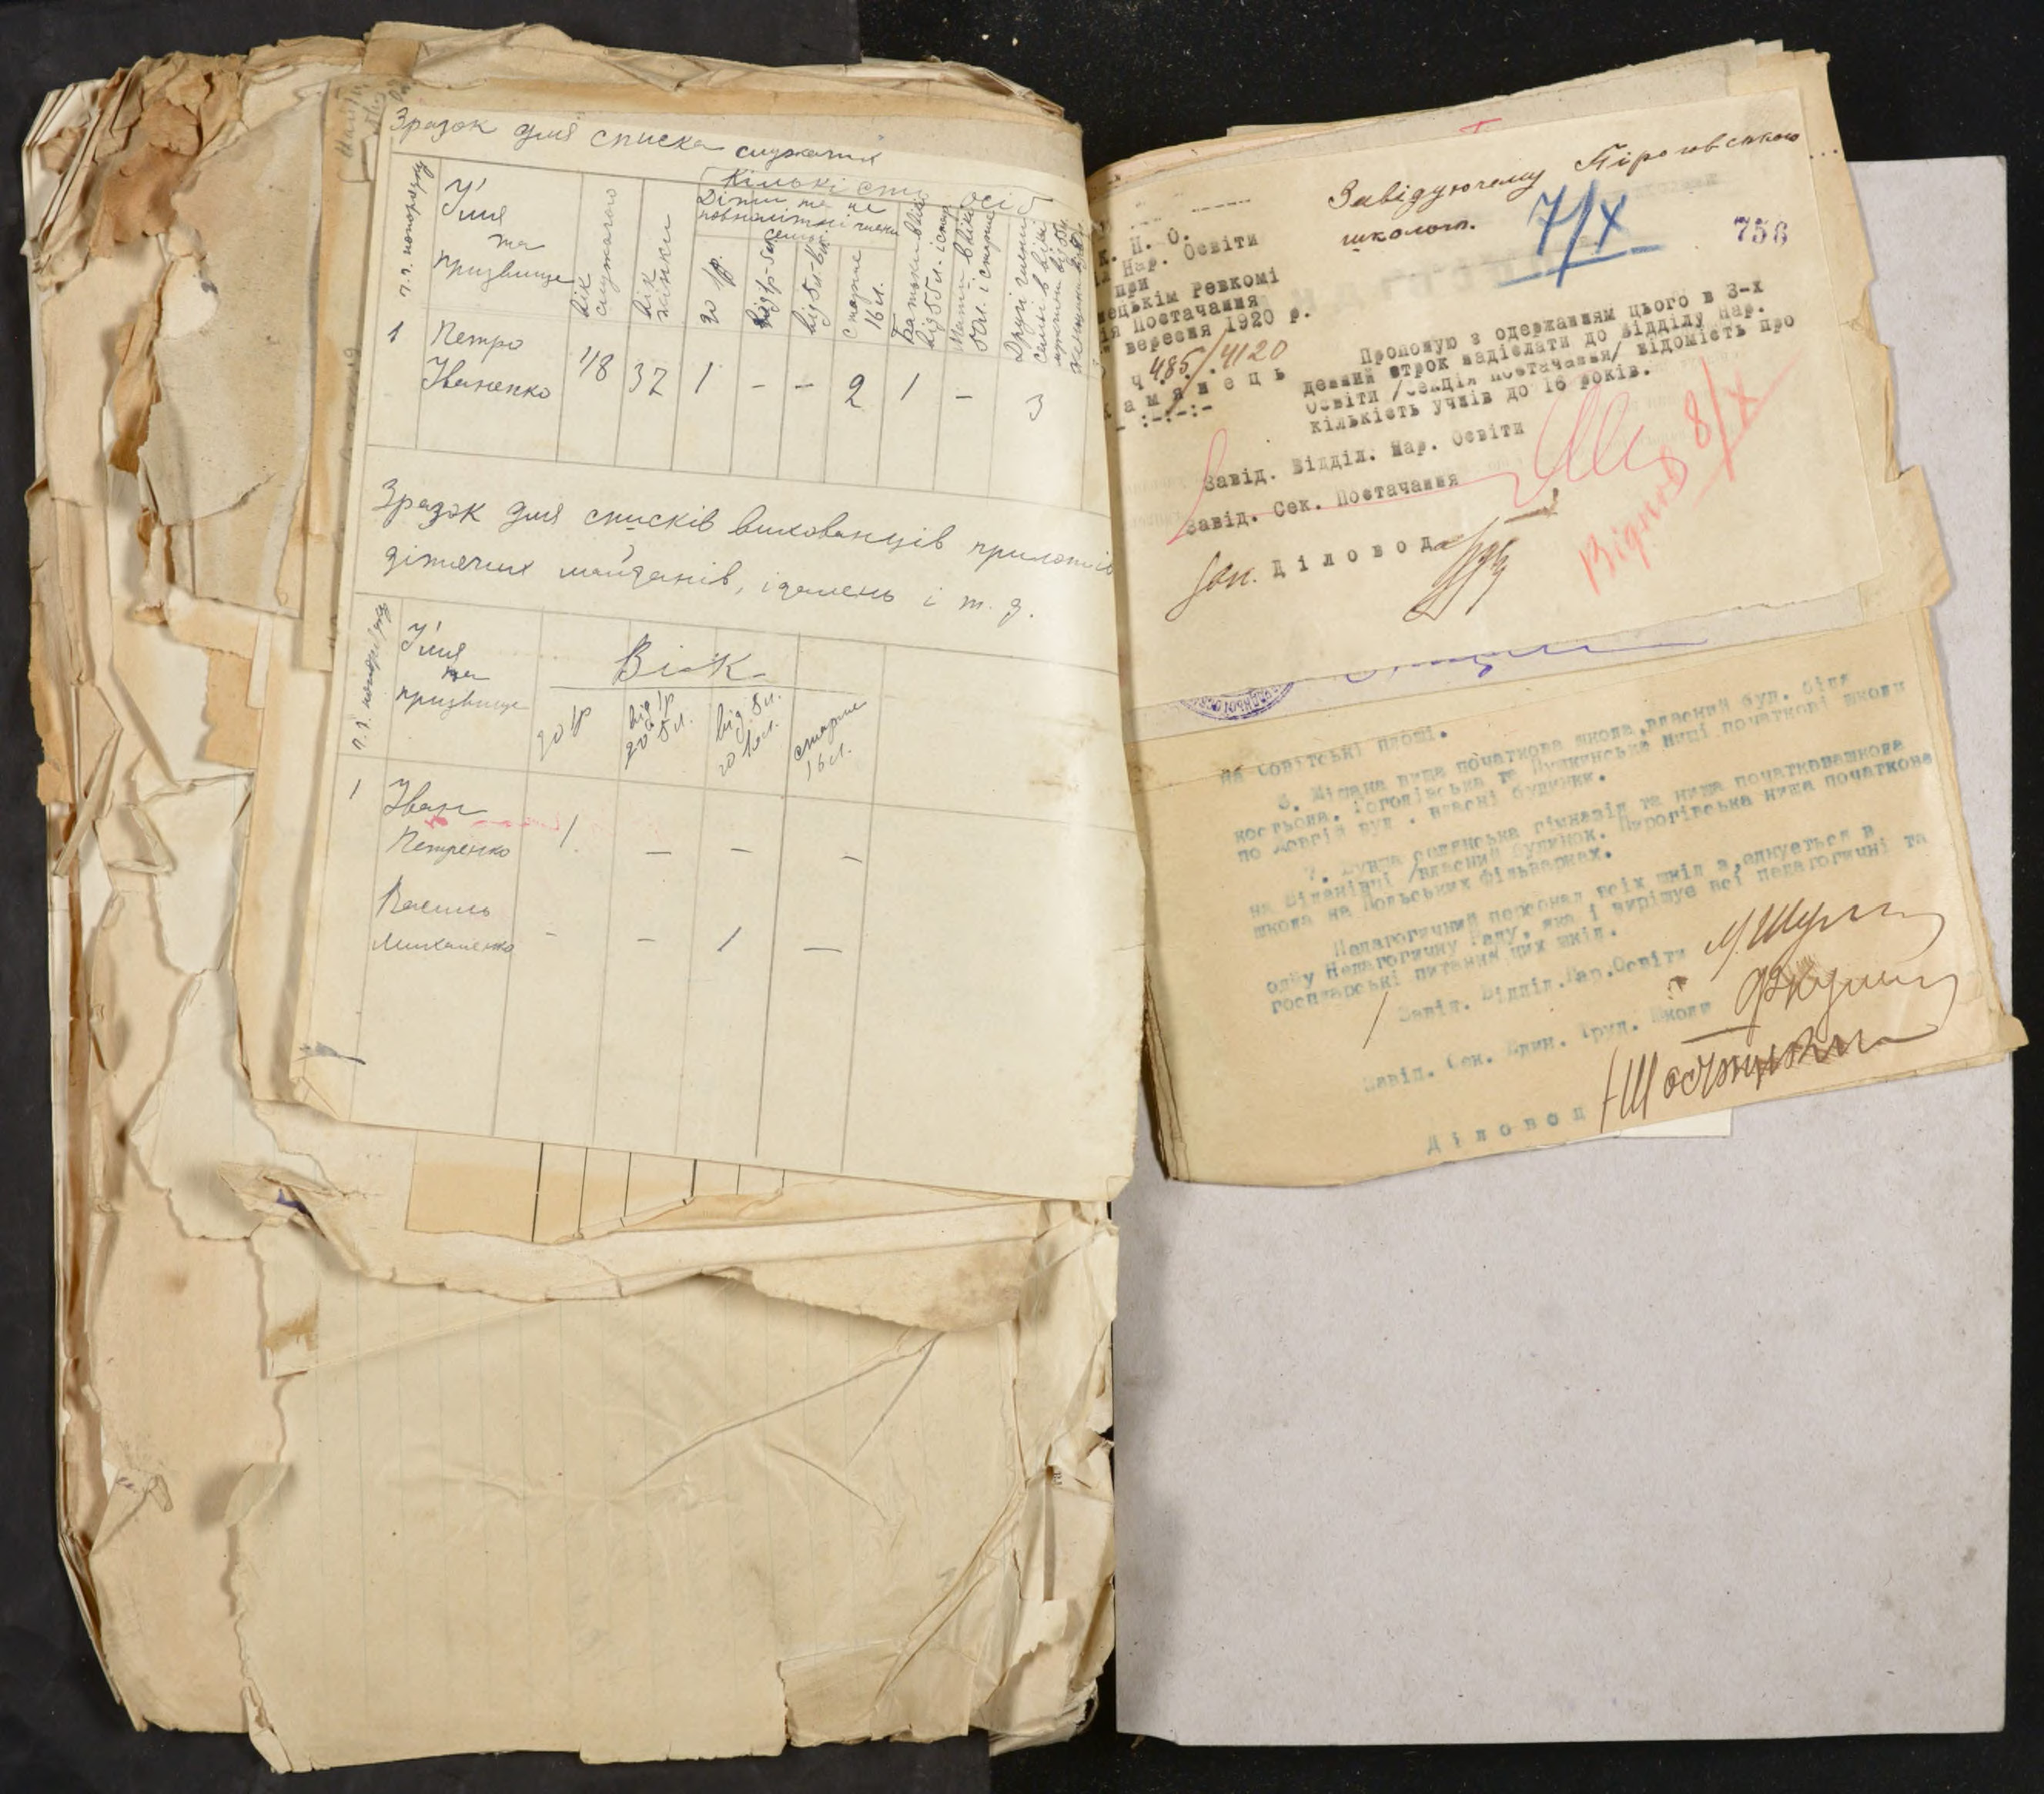 Зразок для списка служачих
п. п. попорядку
Ім'я
та
призвище
вік
служачого
вік
жінки
Кількість осіб
Діти та не
повнолітні члени
сем'ї
до 1р.
від 1р-5л
старше
16 л.
Батьки в віці
від 55 л. і стар
Мати в віці
50л. і старше
Другі члени
1
Петро
Іваненко
48
37
1
-
-
2
1
-
3
Зразок для списків вихованців прилютів
дітячих майданів, їдалень і т. д.
п. п. попорядку
Ім'я
та
призвище
Вік
до 1р
від 1р
до 5 л.
від 5л.
до 16л.
старше
16 л.
1
Іван
Петренко
1
-
-
-
Василь
Михаленко
-
-
1
-
Завідуючему Піроговською
школою.
7/X
756
Н. О.
Нар. Освіти
при
Ревкомі
Постачання
вересня 1920 р.
ч. 485/4120
Пропоную з одержанням цього в 3-х
денний строк надіслати до Відділу Нар.
Освіти /секція постачання/ відомість про
кількість учнів до 16 років.
Завід. Відділ. Нар. Освіти
Завід. Сек. Постачання
Діловод
8/X
на Совітські площі.
6. Мішана вища початкова школа, власний буд. біля
костьола. Гоголівська та Пушкинська нищі початкові школи
по Довгій вул. власні будинки.
7. Друга селянська гімназія та нища початкова школа
на Біланівці /власний будинок. Пирогівська нища початкова
школа на Польських фільварках.
Педагогичний персонал всіх шкіл з,єднується в
одну Педагогичну Раду, яка і вирішує всі педагогичні та
господарські питання цих шкіл.
Завід. Відділ. Нар. Освіти
Завід. Сек. Един. Труд. Школи
Діловод